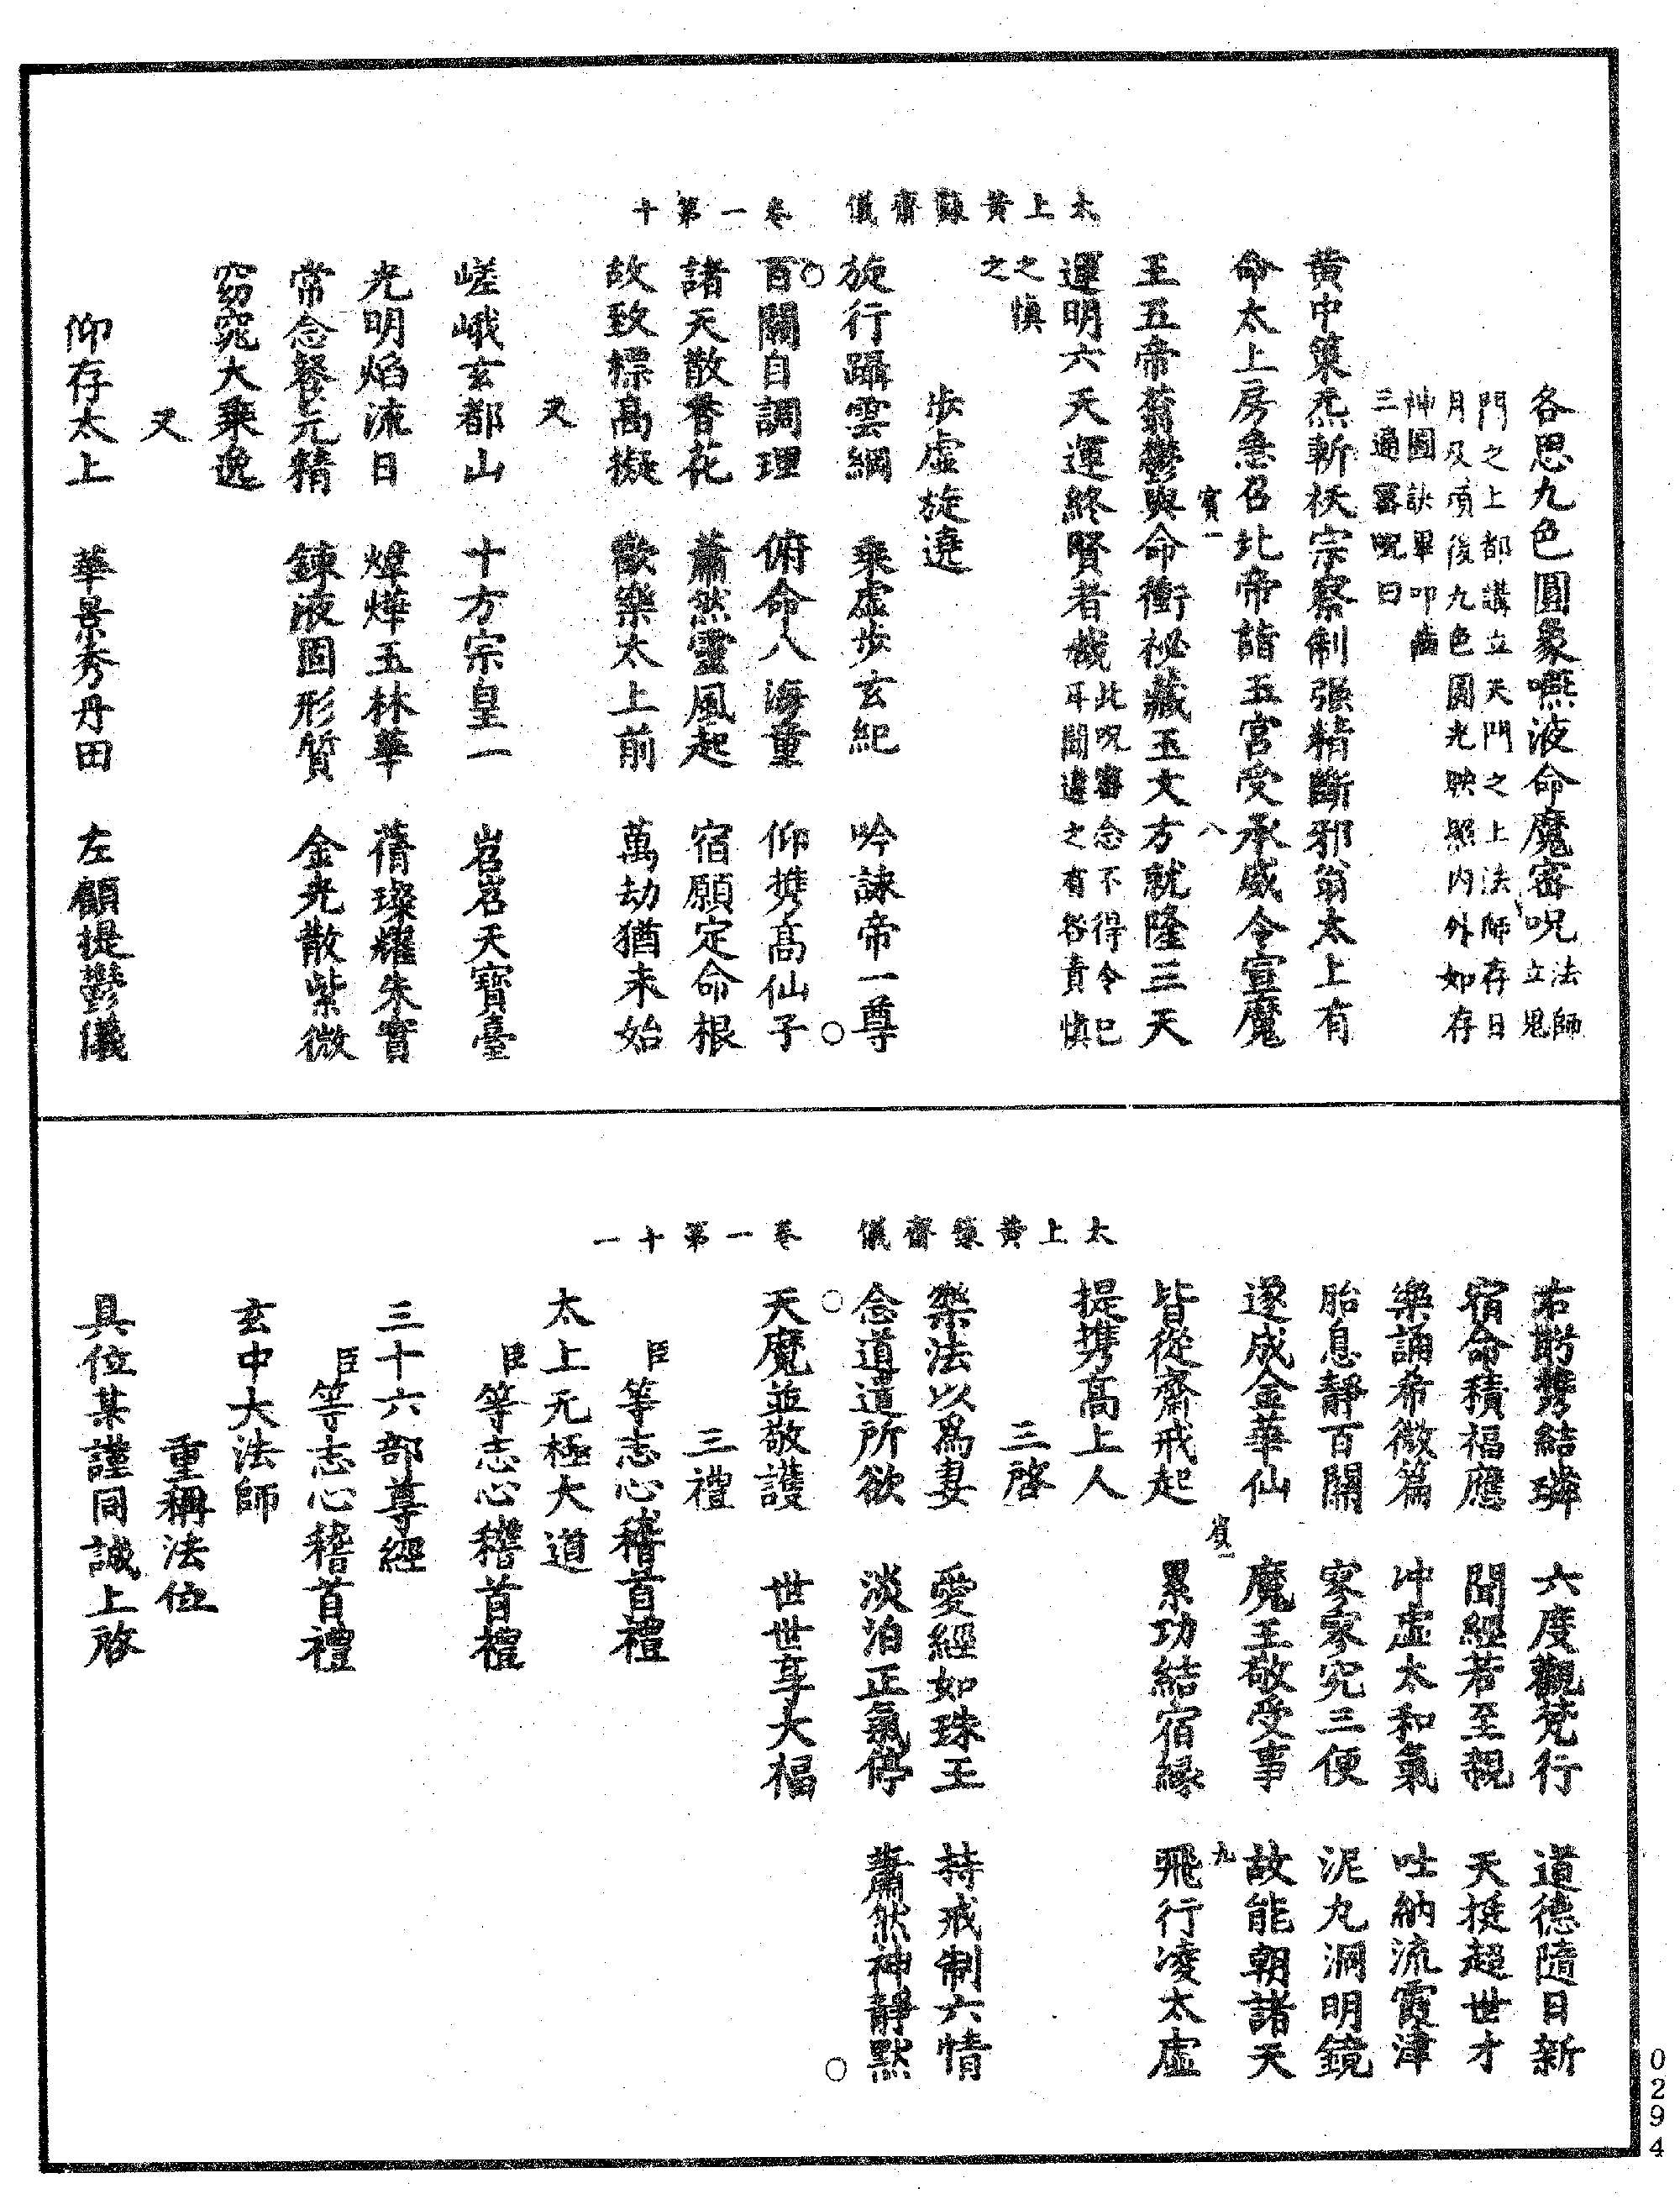 太上黃籙齋儀 卷一第十
各思九色圓象嚥液命魔密呪法師立鬼
門之上都講立天門之上法師存日
月及項後九色圓光映照内外如存
神圖訣畢叩齒
三通密呪曰
黃中策炁斬祅宗察制强精斷邪翁太上有
命太上房急召北帝詣五宮受承威令宣魔
寳一 八
王五帝蓊鬱與命衝祕藏玉文方就隆三天
運明六天天運終賢者機此呪審念不得令已耳聞違之有咎責慎
之慎之
步虛旋遶
旋行躡雲綱 乘虛步玄紀 吟詠帝一尊
百關自調理 俯命八海童 仰攜高仙子
諸天散香花 蕭然靈風起 宿願定命根
故致標高擬 歡樂太上前 萬劫猶未始
又
嵯峨玄都山 十方宗皇一 岧岧天寶臺
光明焰流日 煒燁玉林華 蒨璨耀朱實
常念餐元精 鍊液固形質 金光散紫微
窈窕大乘逸
又
仰存太上 華景秀丹田 左顧提鬱儀
太上黃籙齋儀 卷一第十一
右盻攜結璘 六度觀梵行 道德隨日新
宿命積福應 聞經若至親 天挺超世才
樂誦希微篇 冲虛太和氣 吐納流霞津
胎息靜百關 寥寥究三便 泥丸洞明鏡
遂成金華仙 魔王敬受事 故能朝諸天
寳一 九
皆從齋戒起 累功結宿緣 飛行凌太虛
提攜高上人
三啓
樂法以爲妻 愛經如珠玉 持戒制六情
念道遣所欲 淡泊正氣停 蕭然神靜默
天魔並敬護 世世享大福
三禮
臣等志心稽首禮
太上无極大道
臣等志心稽首禮
三十六部尊經
臣等志心稽首禮
玄中大法師
重稱法位
具位某謹同誠上啓
0294